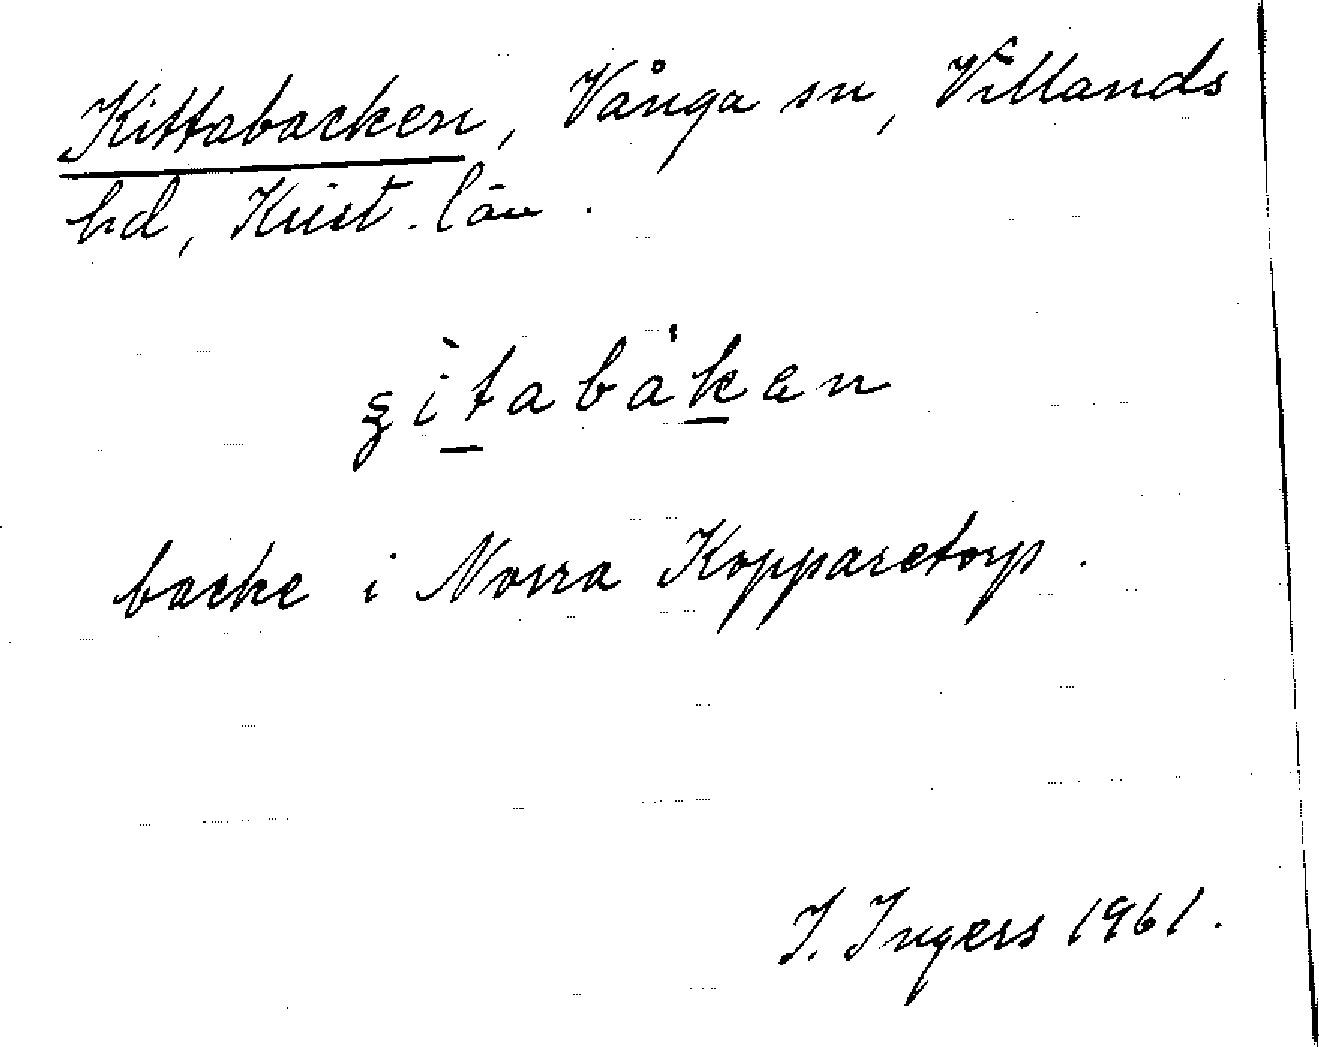 Kittabacken, Vånga sn, Villands
hd, Krist. län.
ʂìtabákan
backe i Norra Kopparetorp.
I. Ingers 1961.